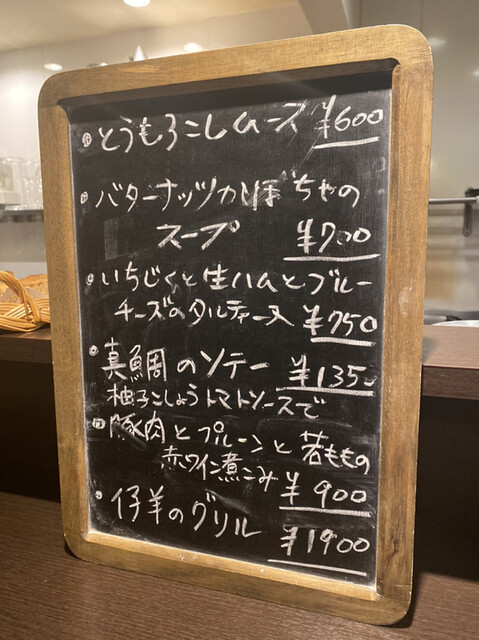 とうもろこしムース ¥600
バターナッツかぼちゃの
スープ ¥700
いちじくと生ハムとブルー
チーズのタルティーヌ ¥750
真鯛のソテー ¥1350
柚子こしょうトマトソースで
豚肉とプルーンと若ももの
赤ワイン煮こみ ¥900
仔羊のグリル ¥1900